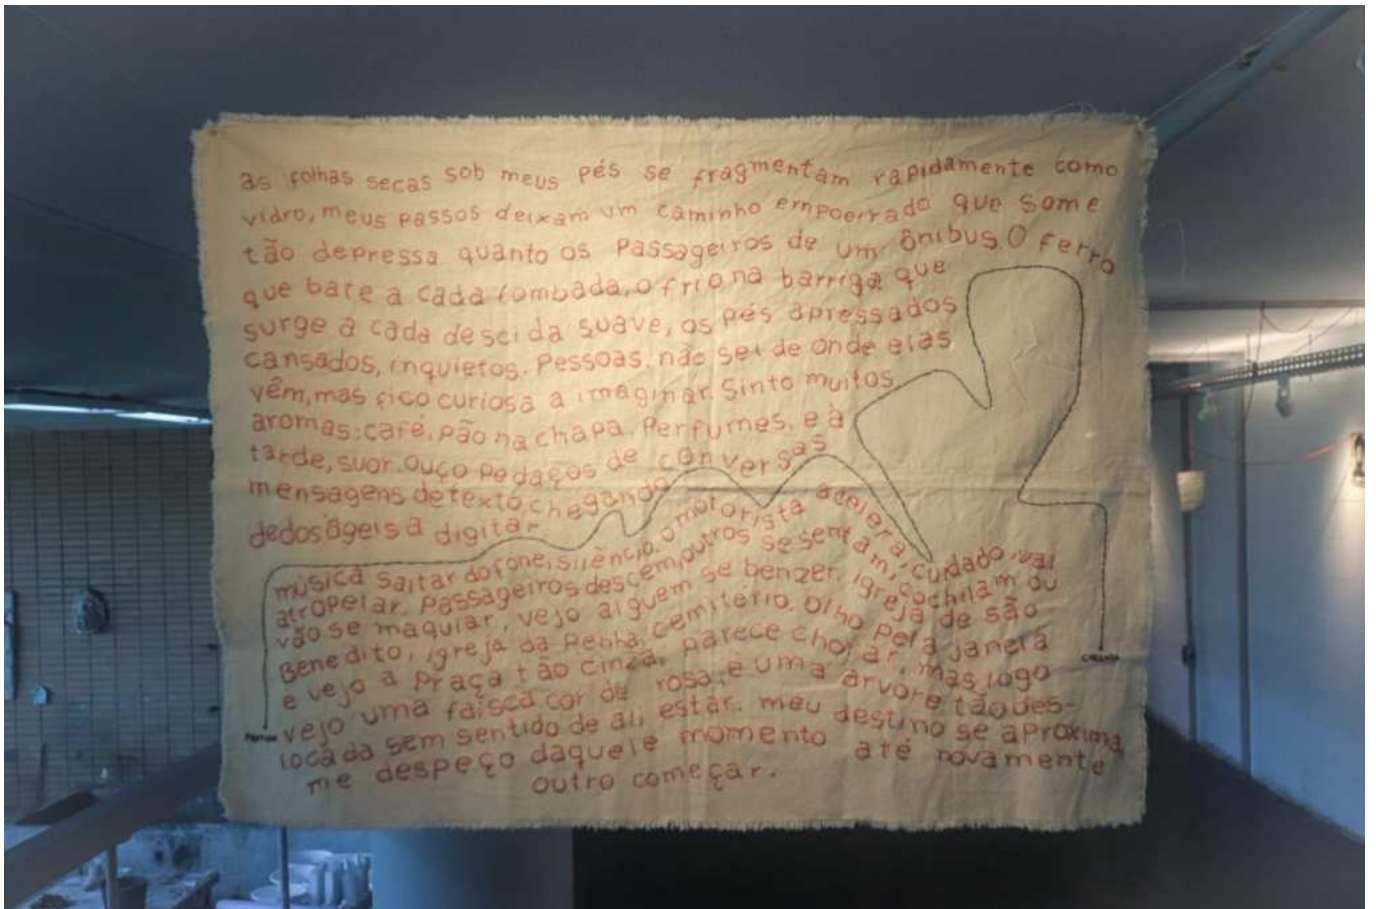 as folhas secas sob meus pés se fragmentam rapidamente como
vidro, meus passos deixam um caminho empoeirado que some
tão depressa quanto os passageiros de um ônibus. O ferro
que bate a cada lombada, o frio na barriga que
surge a cada descida suave, os pés apressados
cansados, inquietos. Pessoas, não sei de onde elas
vêm, mas fico curiosa a imaginar. Sinto muitos
aromas: café, pão na chapa. Perfumes, e à
tarde, suor. Ouço pedaços de conversas
mensagens de texto, chegando
dedos ágeis a digitar
música saltar do fone, silêncio. O motorista acelera, cuidado, vai
atropelar. Passageiros descem, outros se sentam, cochilam ou
vão se maquiar, vejo alguem se benzer. Igreja de são
Benedito, igreja da Penha, Cemitério. Olho pela janela
e vejo a praça tão cinza, parece chorar, mas logo
vejo uma faísca cor de rosa, é uma árvore tão des-
locada sem sentido de ali estar. meu destino se aproxima,
me despeço daquele momento até novamente
outro começar.
PARTIDA
CHEGADA